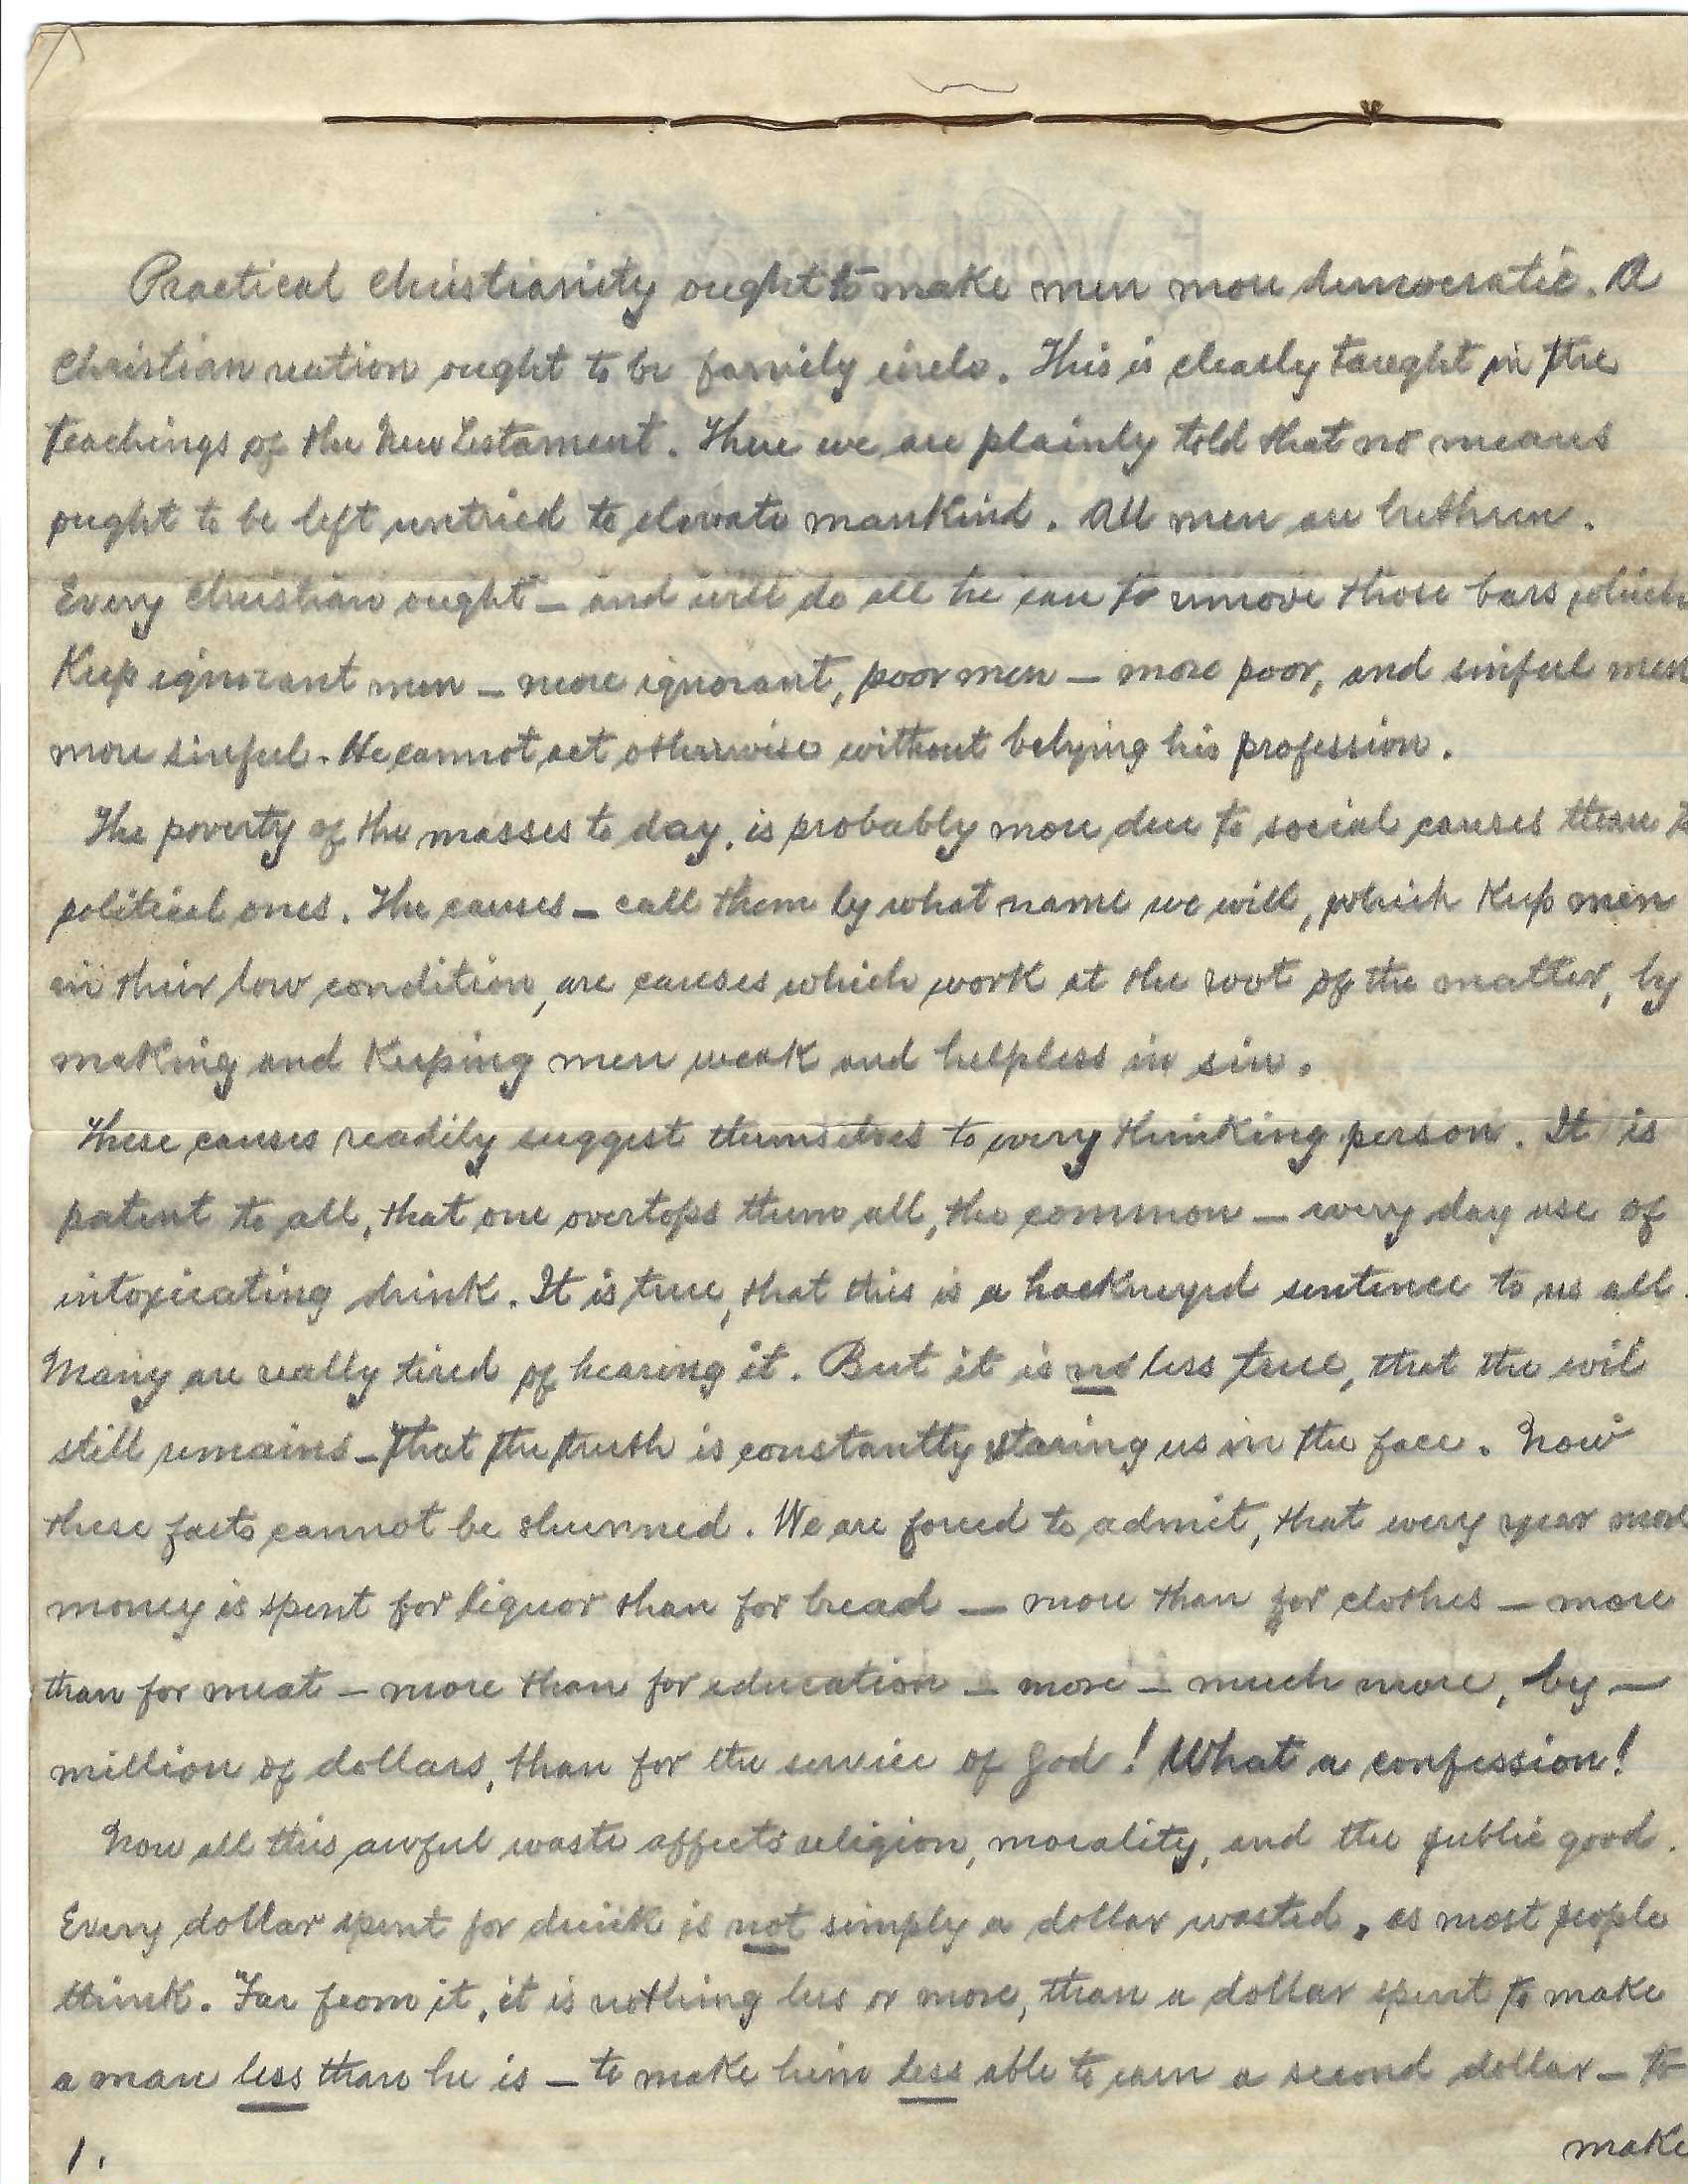 Practical Christianity ought to make men more democratic. A
Christian nation ought to be family circle. This is clearly taught in the
teachings of the New Testament. There we are plainly told that no means
ought to be left untried to elevate mankind. All men are brethren.
Every Christian ought – and will do all he can to remove those bars, which
Keep ignorant men – more ignorant, poor men – more poor, and sinful men
more sinful. He cannot act otherwise without belying his profession.
The poverty of the masses to day, is probably more due to social causes than to
political ones. The causes – call them by what name we will, which Keep men
in their low condition, are causes which work at the root of the matter, by
making and Keeping men weak and helpless in sin.
These causes readily suggest themselves to every thinking person. It is
patent to all, that one overtops them all, the common – every day use of
intoxicating drink. It is true, that this is a hackneyed sentence to us all.
Many are really tired of hearing it. But it is no less true, that the evil
still remains – that the truth is constantly staring us in the face. Now
these facts cannot be shunned. We are forced to admit, that every year more
money is spent for liquor than for bread – more than for clothes – more
than for meat – more than for education – more – much more, by –
million of dollars, than for the service of God! What a confession!
Now all this awful waste affects religion, morality, and the public good.
Every dollar spent for drink is not simply a dollar wasted, as most people
think. Far from it, it is nothing less or more, than a dollar spent to make
a man less than he is – to make him less able to earn a second dollar – to
1. make